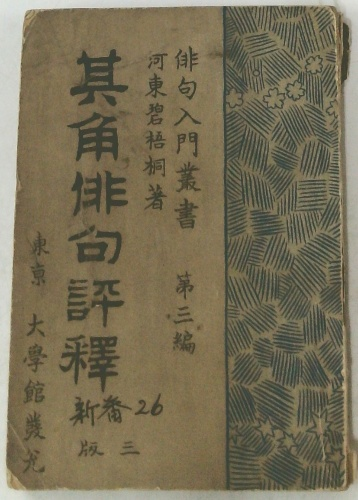 俳句入門叢書 第三編
河東碧梧桐著
其角俳句評釋
東京 大學館發兌
新番26
三版